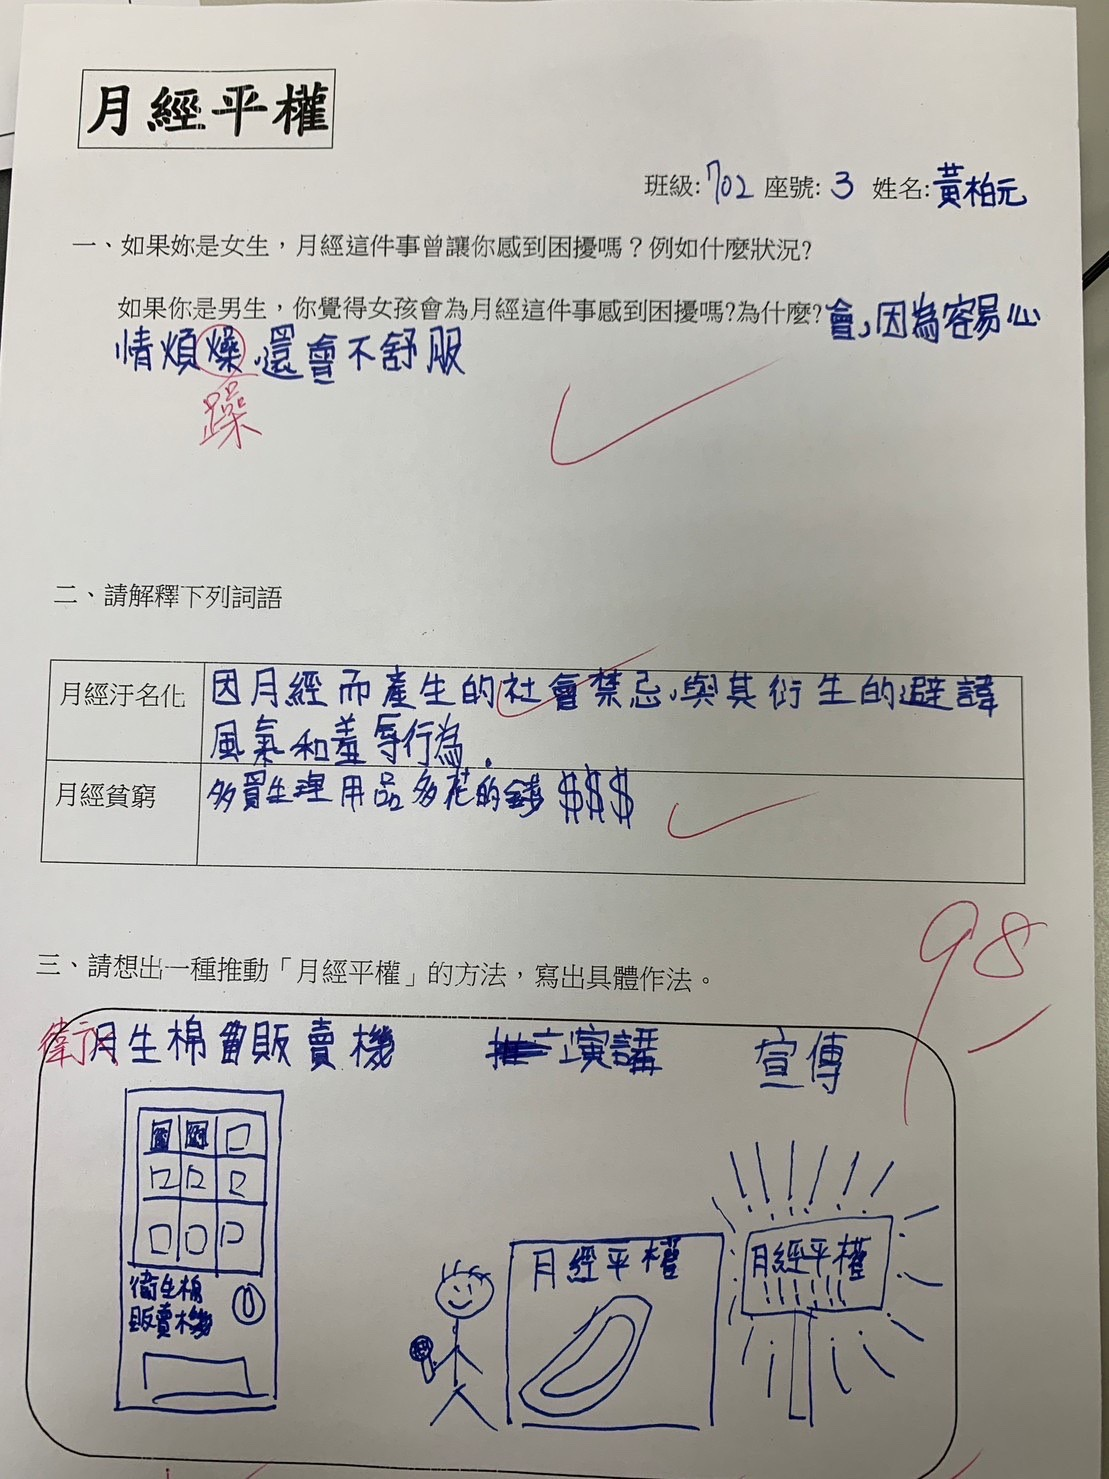 月經平權
班級:702 座號:3 姓名:黃柏元
一、如果妳是女生，月經這件事曾讓你感到困擾嗎？例如什麼狀況?
如果你是男生，你覺得女孩會為月經這件事感到困擾嗎?為什麼?會，因為容易心
情煩燥，還會不舒服
躁
二、請解釋下列詞語
月經汙名化 因月經而產生的社會禁忌，與其衍生的避諱
風氣和羞辱行為.
月經貧窮 多買生理用品多花的錢 $$$
98
三、請想出一種推動「月經平權」的方法，寫出具體作法。
衛生棉販賣機 演講 宣傳
衛生棉
販賣機
月經平權
月經平權
!!!!!!